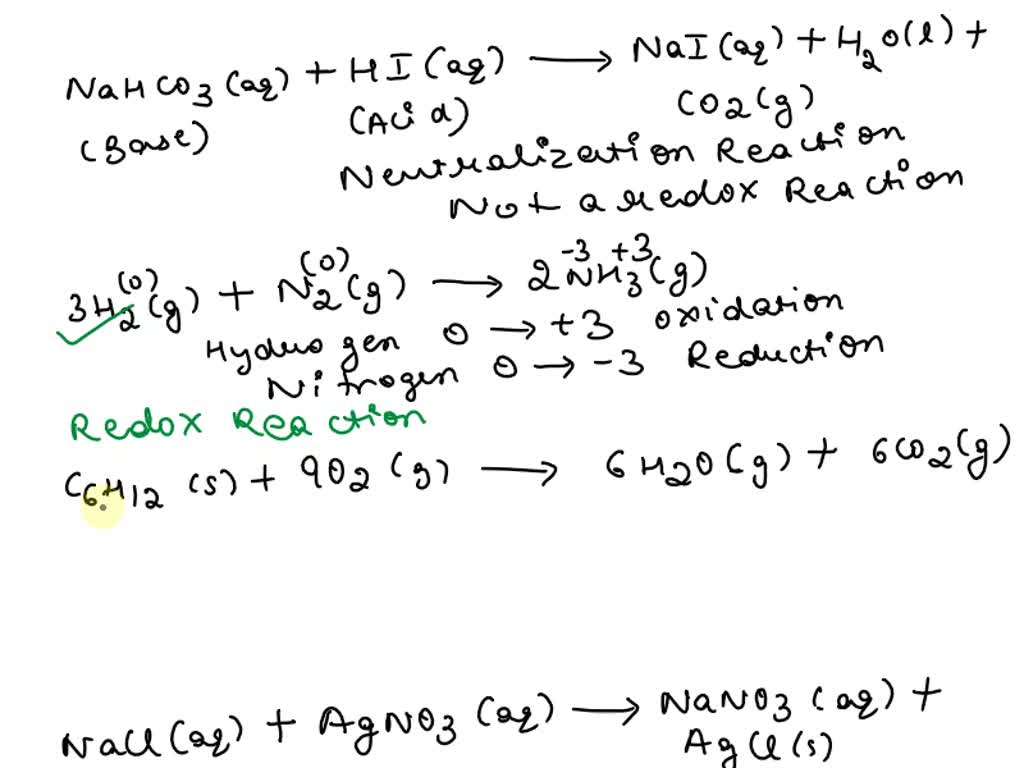 NaHCO3 (aq) + HI (aq) ⟶ NaI (aq) + H2O(l) +
(Base) (Acid) CO2(g)
Neutralization Reaction
Not a redox Reaction
3H2(g) (0) + N2(g) (0) ⟶ 2NH3(g) -3 +3
Hydrogen 0 → +3 oxidation
Nitrogen 0 → -3 Reduction
Redox Reaction
C6H12 (s) + 9O2 (g) ⟶ 6H2O(g) + 6CO2(g)
NaCl(aq) + AgNO3 (aq) ⟶ NaNO3 (aq) +
AgCl(s)